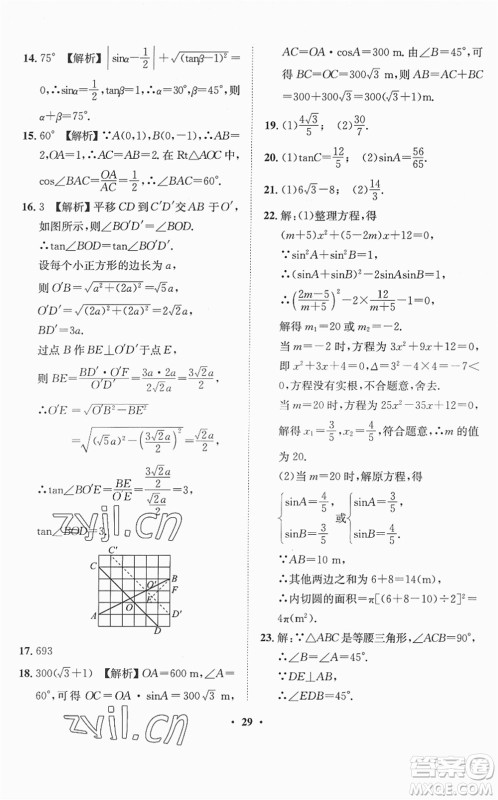 14. 75° 【解析】|sinα−1/2|+√(tanβ−1)²=
0,∴sinα=1/2,tanβ=1,∴α=30°,β=45°,则
α+β=75°.
15. 60° 【解析】∵A(0,1),B(0,−1),∴AB=
2,OA=1,∴AC=AB=2. 在 Rt△AOC 中,
cos∠BAC=OA/AC=1/2,∴∠BAC=60°.
16. 3 【解析】平移 CD 到 C′D′交 AB 于 O′,
如图所示,则∠BO′D′=∠BOD,
∴tan∠BOD=tan∠BO′D′.
设每个小正方形的边长为 a,
则 O′B=√(a²+(2a)²)=√5a,
O′D′=√((2a)²+(2a)²)=2√2a,
BD′=3a.
过点 B 作 BE⊥O′D′于点 E,
则 BE=BD′·O′F/O′D′=3a·2a/2√2a=3√2a/2,
∴O′E=√(O′B²−BE²)
=√((√5a)²−(3√2a/2)²)=√2a/2,
∴tan∠BO′E=BE/O′E=(3√2a/2)/(√2a/2)=3,∴
tan∠BOD=3.
C C′ O′ B F E O A D D′
17. 693
18. 300(√3+1) 【解析】OA=600 m,∠A=
60°,可得 OC=OA·sinA=300√3 m,
AC=OA·cosA=300 m. 由∠B=45°,可
得 BC=OC=300√3 m,则 AB=AC+BC
=300+300√3=300(√3+1)(m).
19. (1)4√3/5; (2)30/7.
20. (1)tanC=12/5; (2)sinA=56/65.
21. (1)6√3−8; (2)14/3.
22. 解:(1)整理方程,得
(m+5)x²+(5−2m)x+12=0,
∵sin²A+sin²B=1,
∴(sinA+sinB)²−2sinAsinB=1,
∴((2m−5)/(m+5))²−2×12/(m+5)=1,
解得 m₁=−2,m₂=20.
当 m=−2 时,方程为 3x²+9x+12=0,即
x²+3x+4=0,Δ=3²−4×4=−7<0.
∴方程没有实根,不符合题意.
当 m=20 时,方程为 25x²−35x+12=0,
解得 x₁=3/5,x₂=4/5,符合题意,∴m 的值
为 20.
(2)当 m=20 时,解原方程,得
{sinA=3/5 sinB=4/5 或 {sinA=4/5, sinB=3/5.
∵AB=10 m,
∴两条直角边的长为 6 m,8 m,
∴Rt△ABC 的面积为 6+8=14(m).
∴内切圆的面积=π[(6+8−10)/2]²=
4π(m²).
23. 解:∵△ABC 是等腰三角形,∠ACB=90°,
∴∠B=∠A=45°.
∵DE⊥AB,
∴∠EDB=45°.
• 29 •
zyjl.cn
zyjl.cn
答案圈
MXQE.COM